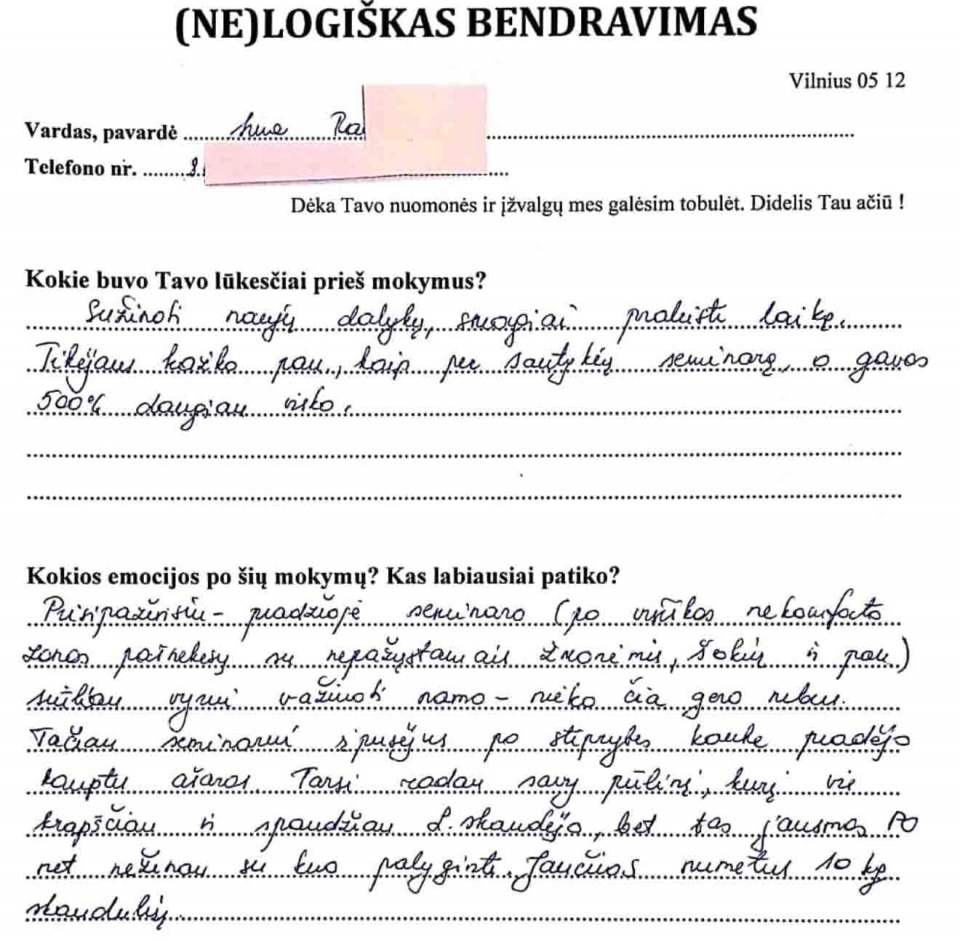 (NE)LOGIŠKAS BENDRAVIMAS
Vilnius 05 12
Vardas, pavardė ........ Ra
Telefono nr. ........
Dėka Tavo nuomonės ir įžvalgų mes galėsim tobulėt. Didelis Tau ačiū !
Kokie buvo Tavo lūkesčiai prieš mokymus?
Sužinoti naujų dalykų, smagiai praleisti laiką.
Tikėjaus kažko pan., kaip per santykių seminarą, o gavos
500% daugiau visko.
Kokios emocijos po šių mokymų? Kas labiausiai patiko?
Prisipažinsiu - pradžioje seminaro (po visiškos nekomforto
zonos pašnekesių su nepažystamais žmonėmis, šokių ir pan.)
sužibau vyrui važiuoti namo - nieko čia gero nebus.
Tačiau seminarui įpusėjus po stiprybės kauke pradėjo
kauptis ašaros. Tarsi radau savy pūlinį, kurį vis
krapščiau ir spaudžiau. Skaudėjo, bet tas jausmas PO
net nežinau su kuo palyginti. Jaučiuos numetus 10 kg
skaudulių.